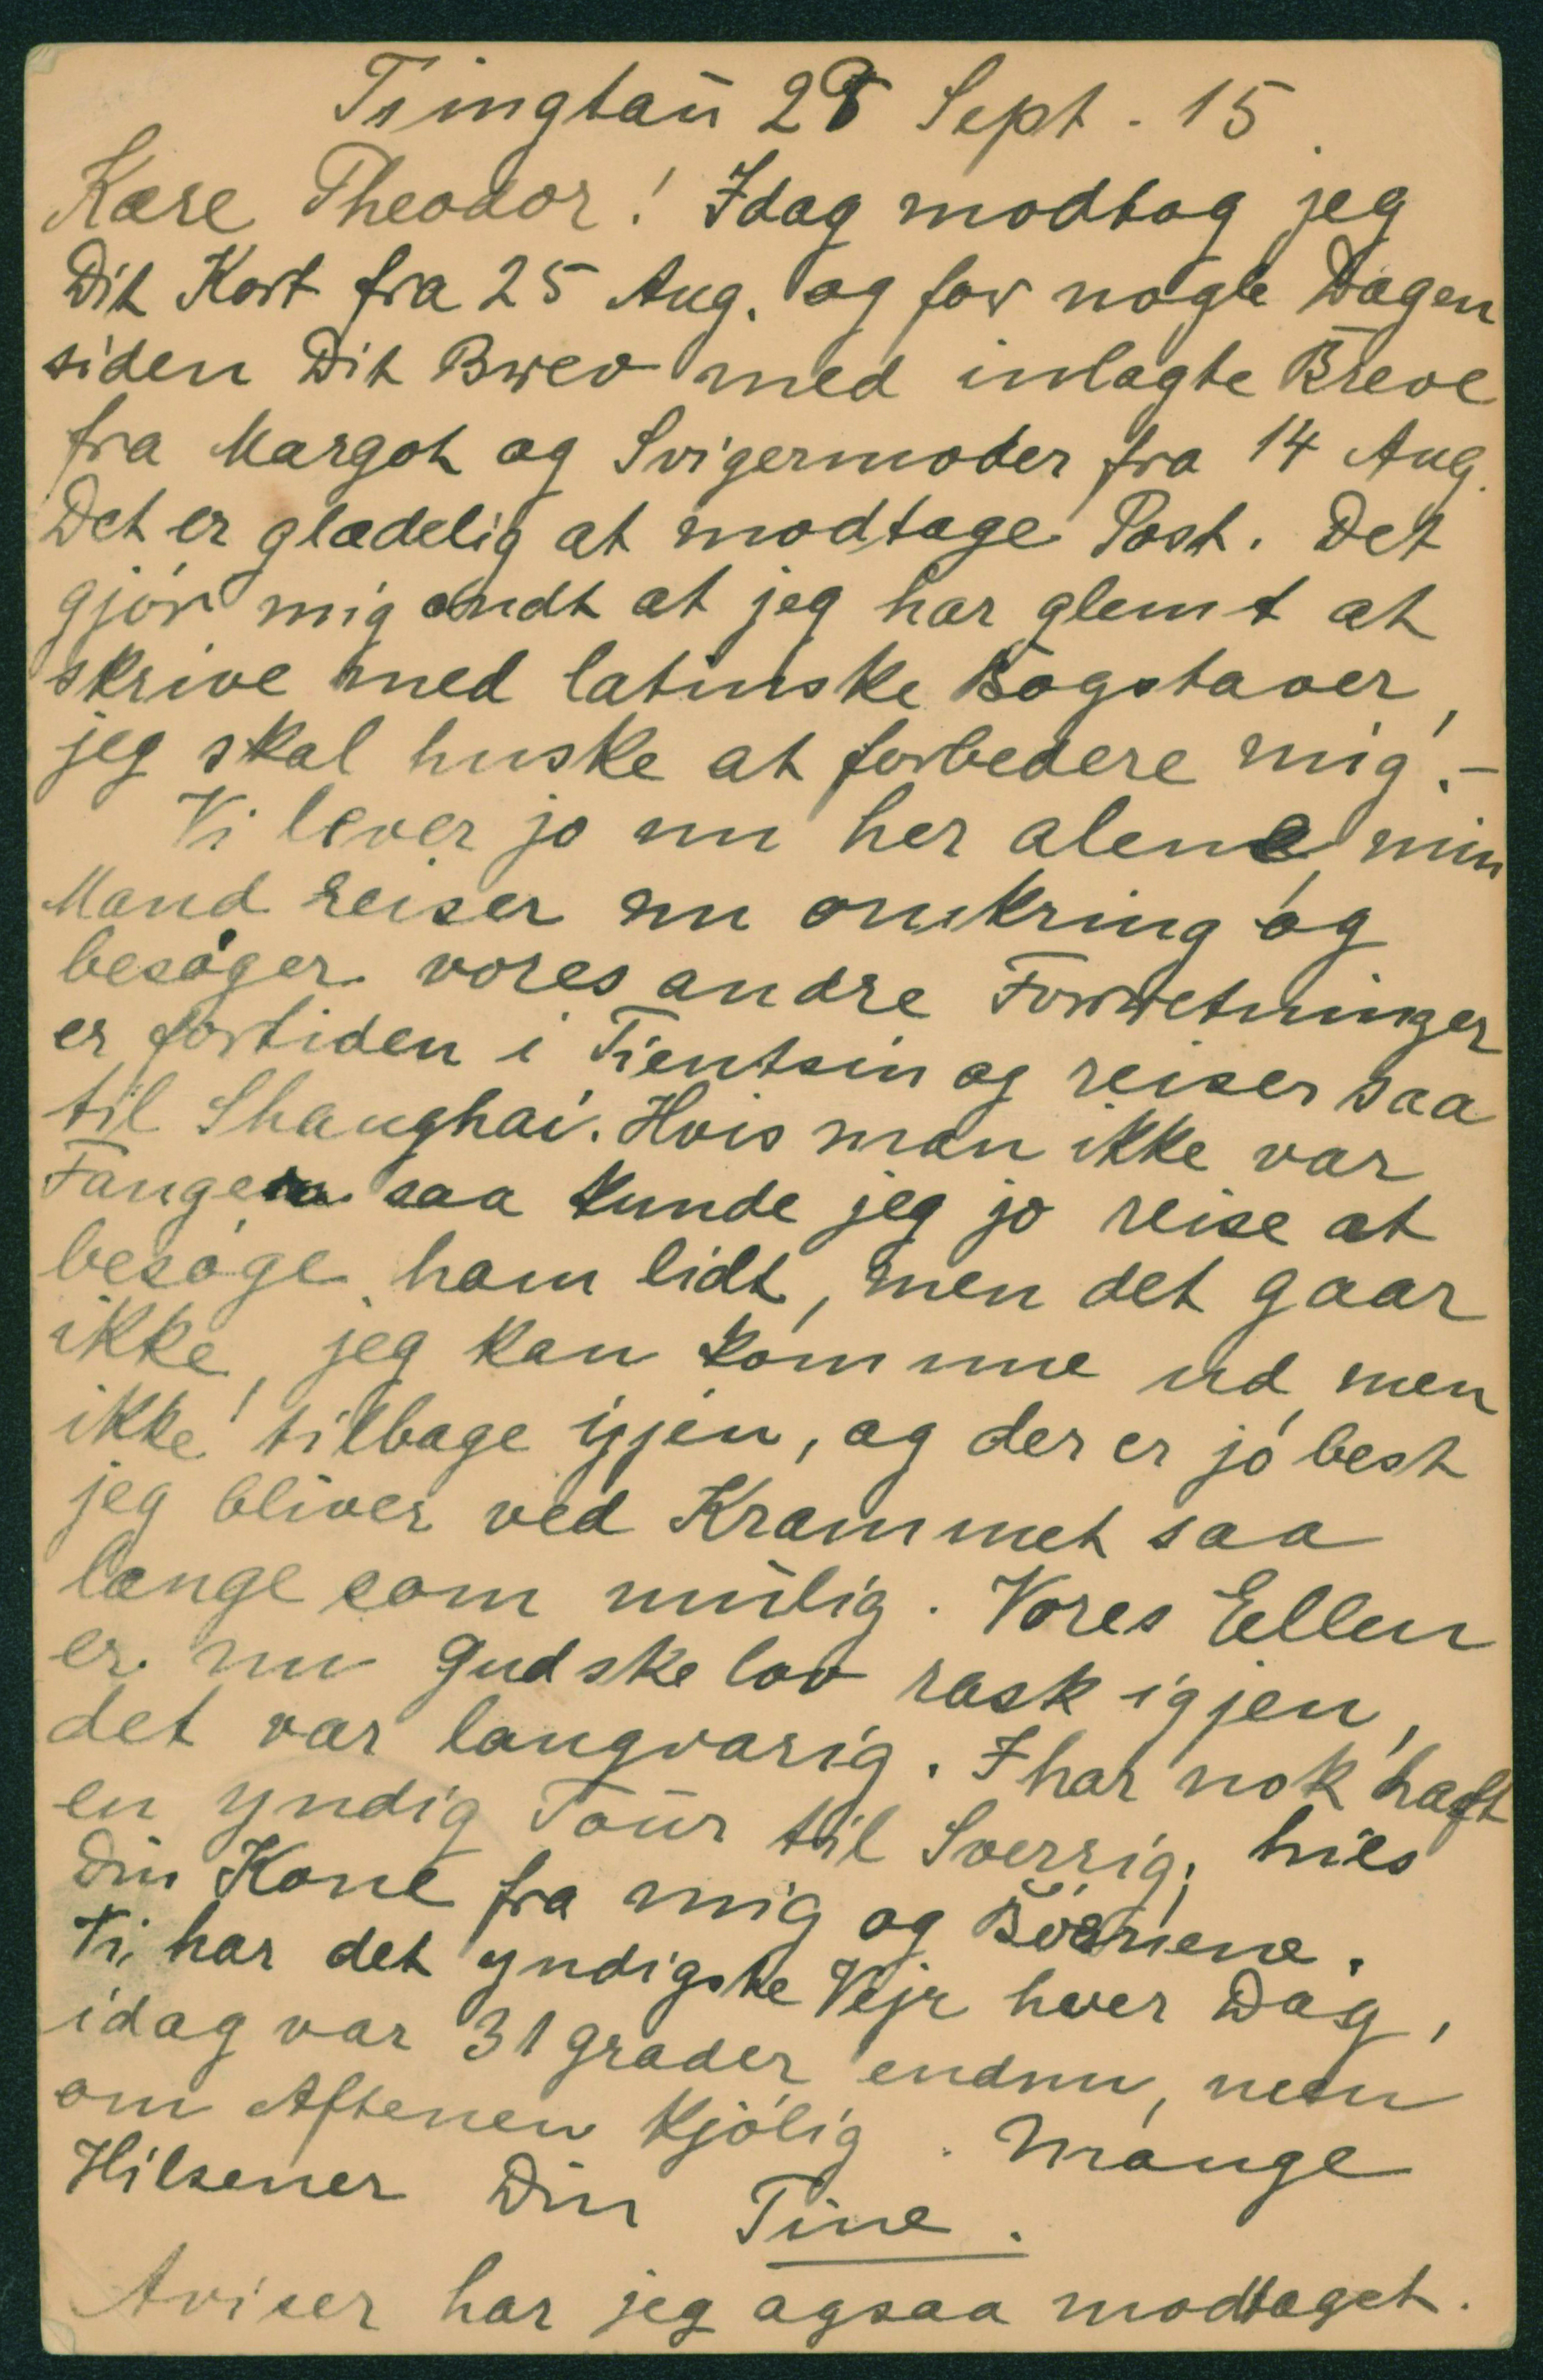 Tsingtaū 28 Sept. 15.
Kære Theodor! Idag modtog jeg
Dit Kort fra 25 Aug. og for nogle Dagen
siden Dit Brev med inlagte Breve
fra Margot og Svigermoder fra 14 Aug.
Det er glædelig at modtage Post. Det
gjör mig ondt at jeg har glemt at
skrive med latinske Bogstaver,
jeg skal huske at forbedere mig.-
Vi lever jo nu her alene, min
Mand reiser nu omkring og
besöger vores andre Forretninger
er fortiden i Tientsin og reiser saa
til Shanghai. Hvis man ikke var
Fange saa kunde jeg jo reise at
besöge ham lidt, men det gaar
ikke, jeg kan komme ud men
ikke tilbage igjen, og der er jo best
jeg bliver ved Krammet saa
længe som mūlig. Vores Ellen
er nu Gudskelov rask igjen,
det var langvarig. I har nok haft
en yndig Toūr til Sverrig, hils
Din Kone fra mig og Börnene.
Vi har det yndigste Vejr hver Dag,
idag var 31 grader endnu, men
om Aftenen kjölig. Mange
Hilsener Din Tine.
Aviser har jeg ogsaa modtaget.